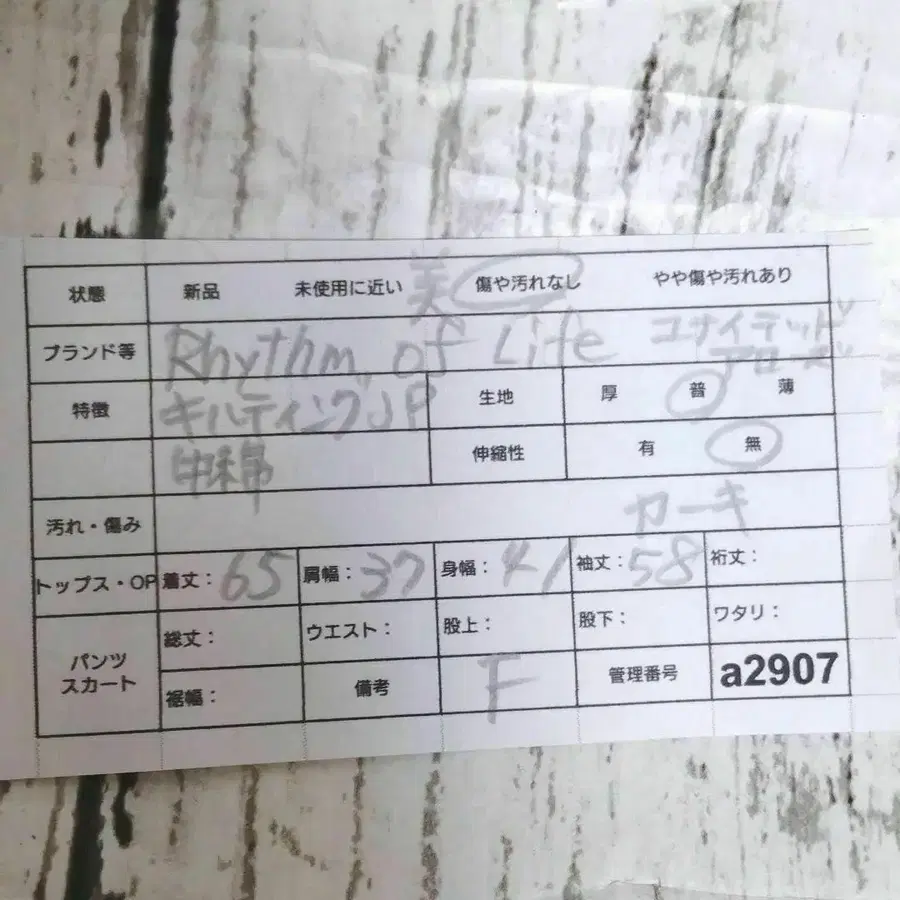 状態 新品 未使用に近い 美 傷や汚れなし やや傷や汚れあり
ブランド等 Rhythm of Life ユナイテッド
アローズ
特徴 キルティングJP 生地 厚 普 薄
中綿 伸縮性 有 無
汚れ・傷み カーキ
トップス・OP 着丈: 65 肩幅: 37 身幅: 41 袖丈: 58 裄丈:
パンツ
スカート
総丈: ウエスト: 股上: 股下: ワタリ:
裾幅: 備考 F 管理番号 a2907